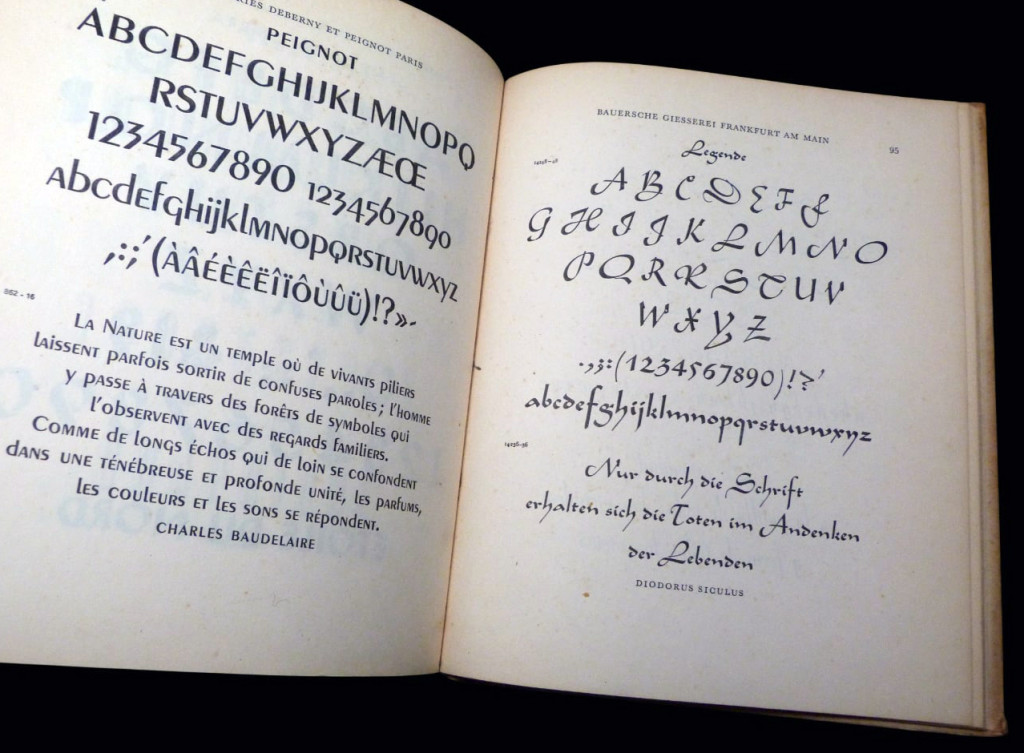 DEBERNY ET PEIGNOT PARIS
PEIGNOT
ABCDEFGHIJKLMNOPQ
RSTUVWXYZÆŒ
1234567890 1234567890
abcdefghijklmnopqrstuvwxyz
,;:;'(ÀÂÉÈÊËÎÏÔÙÛÜ)!?»-
662-16
La Nature est un temple où de vivants piliers
laissent parfois sortir de confuses paroles; l'homme
y passe à travers des forêts de symboles qui
l'observent avec des regards familiers.
Comme de longs échos qui de loin se confondent
dans une ténébreuse et profonde unité, les parfums,
les couleurs et les sons se répondent.
CHARLES BAUDELAIRE
BAUERSCHE GIESSEREI FRANKFURT AM MAIN
95
Legende
A B C D E F F
G H I J J K L M N O
P Q R R S T U V
W X Y Z
.,;:(1234567890)!?'
abcdefghijklmnopqrstuvwxyz
Nur durch die Schrift
erhalten sich die Toten im Andenken
der Lebenden
DIODORUS SICULUS